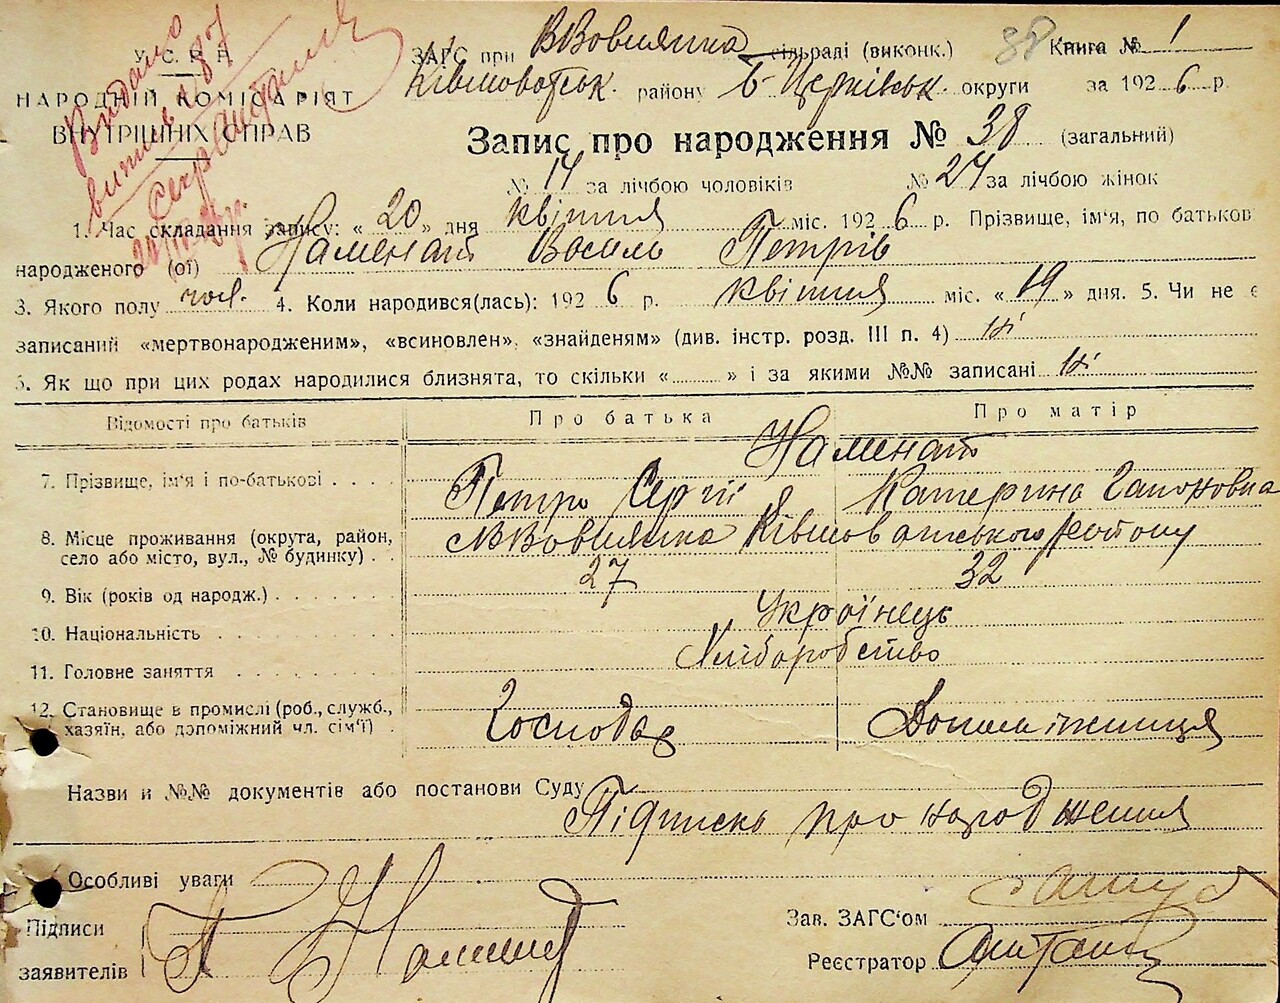 Видано витяг № 87
У. С. Р. Р.
НАРОДНІЙ КОМІСАРІЯТ
ВНУТРІШНІХ СПРАВ
ЗАГС при ВВовнянка сільраді (виконк.) 38 Книга № 1
Ківшоватськ. району Б-Церківськ. округи за 1926 р.
Запис про народження № 38 (загальний)
№ 14 за лічбою чоловіків № 24 за лічбою жінок
1. Час складання запису: «20» дня квітня міс. 1926 р. Прізвище, ім'я, по батькові
народженого (ої) Наменат Василь Петрів
3. Якого полу чол. 4. Коли народився(лась): 1926 р. квітня міс. «19» дня. 5. Чи не є
записаний «мертвонародженим», «всиновлен», «знайденям» (див. інстр. розд. III п. 4) ні
6. Як що при цих родах народилися близнята, то скільки « » і за якими №№ записані ні
Відомості про батьків Про батька Про матір
Наменат
7. Прізвище, ім'я і по-батькові Петро Сергії Катерина Гапоновна
8. Місце проживання (округа, район,
село або місто, вул., № будинку) ВВовнянка Ківшоватського району
9. Вік (років од народж.) 27 32
10. Національність Українець
11. Головне заняття Хліборобство
12. Становище в промислі (роб., служб.,
хазяїн, або допоміжний чл. сім'ї) Господар Домашниця
Назви и №№ документів або постанови Суду
Підписка про народження
Особливі уваги
Підписи
заявителів
Зав. ЗАГС'ом
Реєстратор